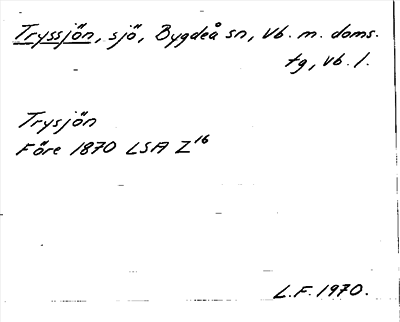 Tryssjön, sjö, Bygdeå sn, Vb. m. doms.
tg, Vb. l.
Trysjön
Före 1870 LSA Z16
L.F. 1970.